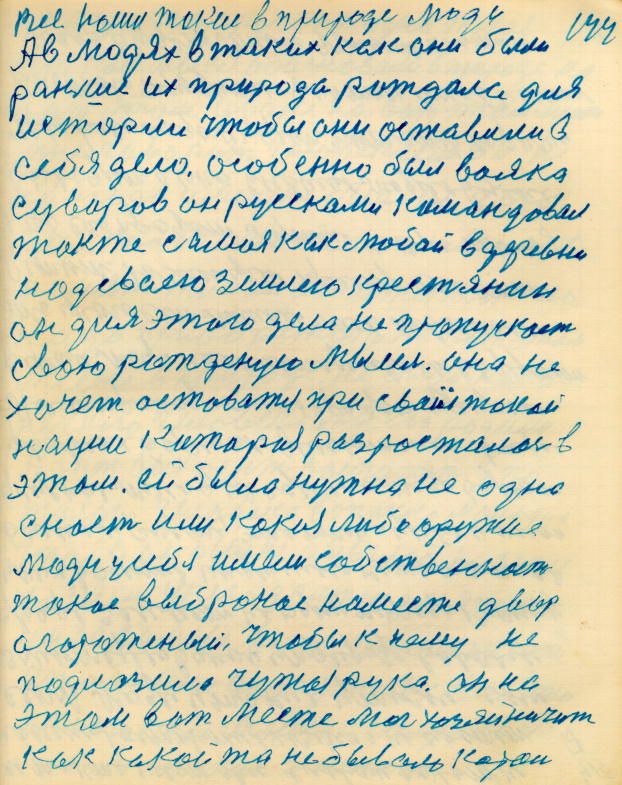 все наши такие в природе люди 177
А в людях в таких как они были
раньше их природа рождала для
истории чтобы они оставили в
себя дело. особенно был вояка
суворов он руссками командовал
также самоя как любой в деревни
надсваею землею крестянин
он для этого дела не пропускает
свою рожденую мысл. она не
хочет оставатя при свай такой
нации Которая разросталас в
этом. ей было нужна не одна
снасть или какая либо оружие
люди усебя имели собственност
такое выброное наместе двор
огороженый, чтобы к нему не
подлазила чужая рука. он на
этом вот месте мог хозяйничит
как какой та небывалы